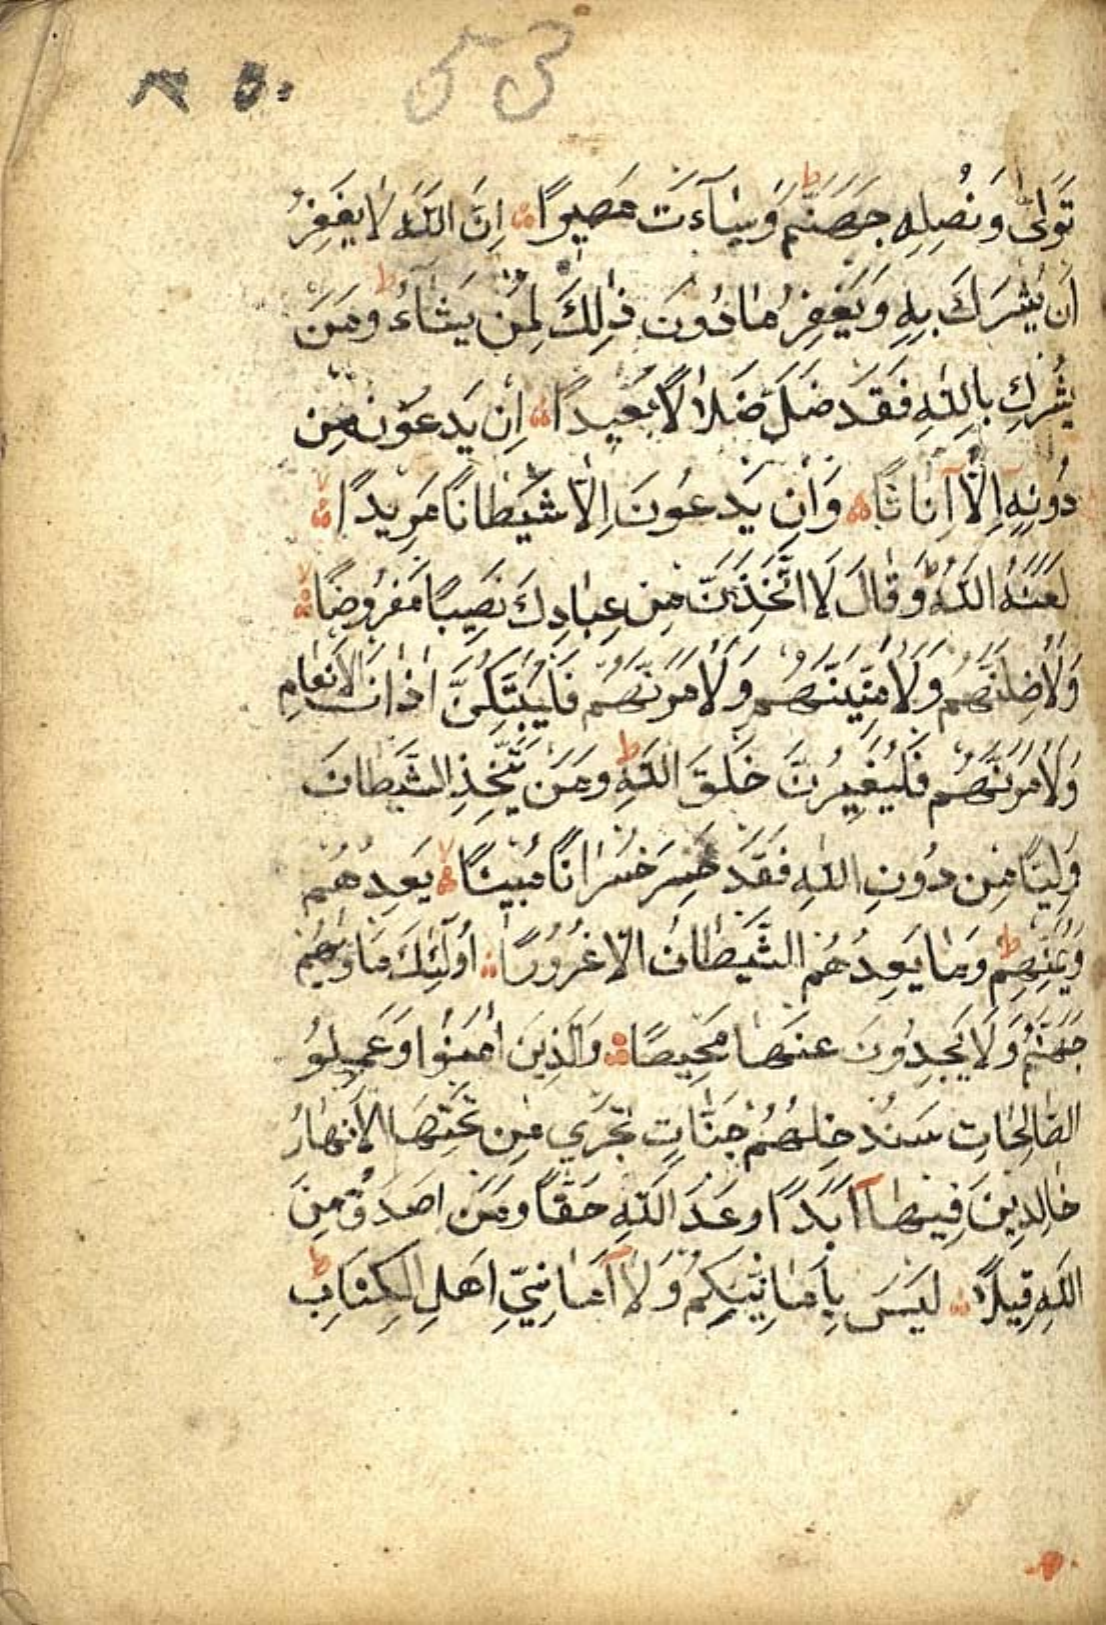 53
تَوَلّٰى وَنُصْلِهِ جَهَنَّمَ وَسٰآءَتْ مَصِيرًا اِنَّ اللّٰهَ لَا يَغْفِرُ
اَنْ يُشْرَكَ بِهِ وَيَغْفِرُ مَا دُونَ ذٰلِكَ لِمَنْ يَشَآءُ وَمَنْ
يُشْرِكْ بِاللّٰهِ فَقَدْ ضَلَّ ضَلَالًا بَعِيدًا اِنْ يَدْعُونَ مِنْ
دُونِهِ اِلَّا اِنَاثًا وَاِنْ يَدْعُونَ اِلَّا شَيْطَانًا مَرِيدًا
لَعَنَهُ اللّٰهُ وَقَالَ لَا اتَّخِذَنَّ مِنْ عِبَادِكَ نَصِيبًا مَفْرُوضًا
وَلَاُضِلَّنَّهُمْ وَلَاُمَنِّيَنَّهُمْ وَلَاٰمُرَنَّهُمْ فَلَيُبَتِّكُنَّ اٰذَانَ الْاَنْعَامِ
وَلَاٰمُرَنَّهُمْ فَلَيُغَيِّرُنَّ خَلْقَ اللّٰهِ وَمَنْ يَتَّخِذِ الشَّيْطَانَ
وَلِيًّا مِنْ دُونِ اللّٰهِ فَقَدْ خَسِرَ خُسْرَانًا مُبِينًا يَعِدُهُمْ
وَيُمَنِّيهِمْ وَمَا يَعِدُهُمُ الشَّيْطَانُ اِلَّا غُرُورًا اُولٰٓئِكَ مَاْوٰيهُمْ
جَهَنَّمُ وَلَا يَجِدُونَ عَنْهَا مَحِيصًا وَالَّذِينَ اٰمَنُوا وَعَمِلُو
الصَّالِحَاتِ سَنُدْخِلُهُمْ جَنَّاتٍ تَجْرِي مِنْ تَحْتِهَا الْاَنْهَارُ
خَالِدِينَ فِيهَا اَبَدًا وَعْدَ اللّٰهِ حَقًّا وَمَنْ اَصْدَقُ مِنَ
اللّٰهِ قِيلًا لَيْسَ بِاَمَانِيِّكُمْ وَلَا اَمَانِيِّ اَهْلِ الْكِتَابِ